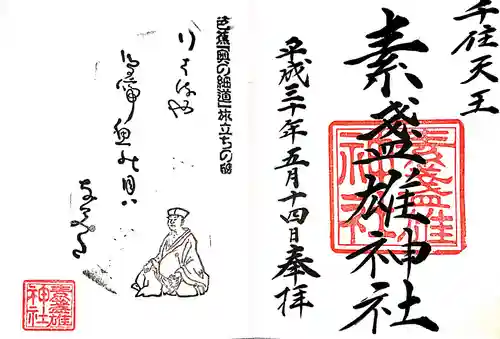 千住天王
素盞雄神社
素盞雄
神社
平成三十年五月十四日奉拝
芭蕉「奥の細道」旅立ちの句
行くはるや
鳥啼魚の目は
なみだ
素盞雄
神社